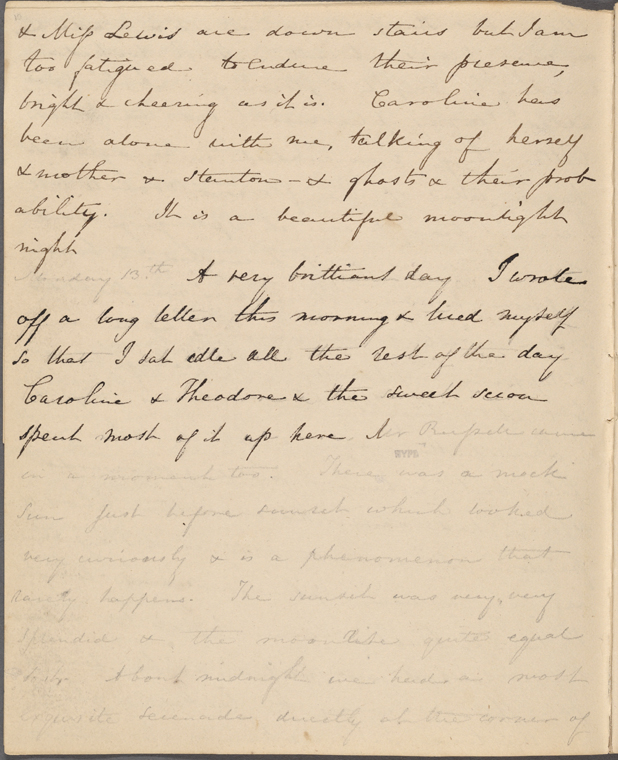 & Miss Lewis are down stairs but I am
too fatigued to endure their presence,
bright & cheering as it is. Caroline has
been alone with me, talking of herself
& mother & Stanton - & ghosts & their prob
ability. It is a beautiful moonlight
night
Monday 13th A very brilliant day I wrote
off a long letter this morning & tired myself
so that I sat idle all the rest of the day
Caroline & Theodore & the sweet scion
spent most of it up here Mr Russell came
NYPL
in a moment too. There was a mock
Sun just before sunset which looked
very curiously & is a phenomenon that
rarely happens. The sunset was very, very
splendid & the moonlite quite equal
to it. About midnight we had a most
exquisite serenade directly at the corner of